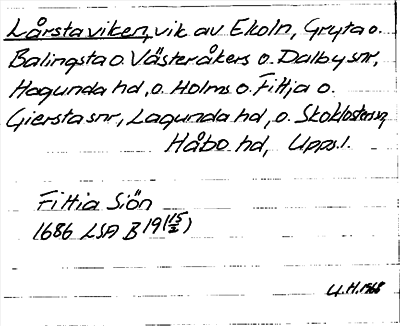 Lårstaviken, vik av Ekoln, Gryta o.
Balingsta o. Västeråkers o. Dalby snr,
Hagunda hd, o. Holms o. Fittja o.
Giersta snr, Lagunda hd, o. Skoklosters sn,
Håbo hd, Upps. l.
Fittia Siön
1686 LSA B 19 (15/2)
U.H. 1968